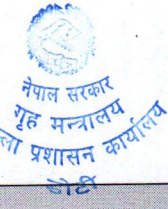 नेपाल सरकार
गृह मन्त्रालय
ला प्रशासन कार्यालय
डोटी